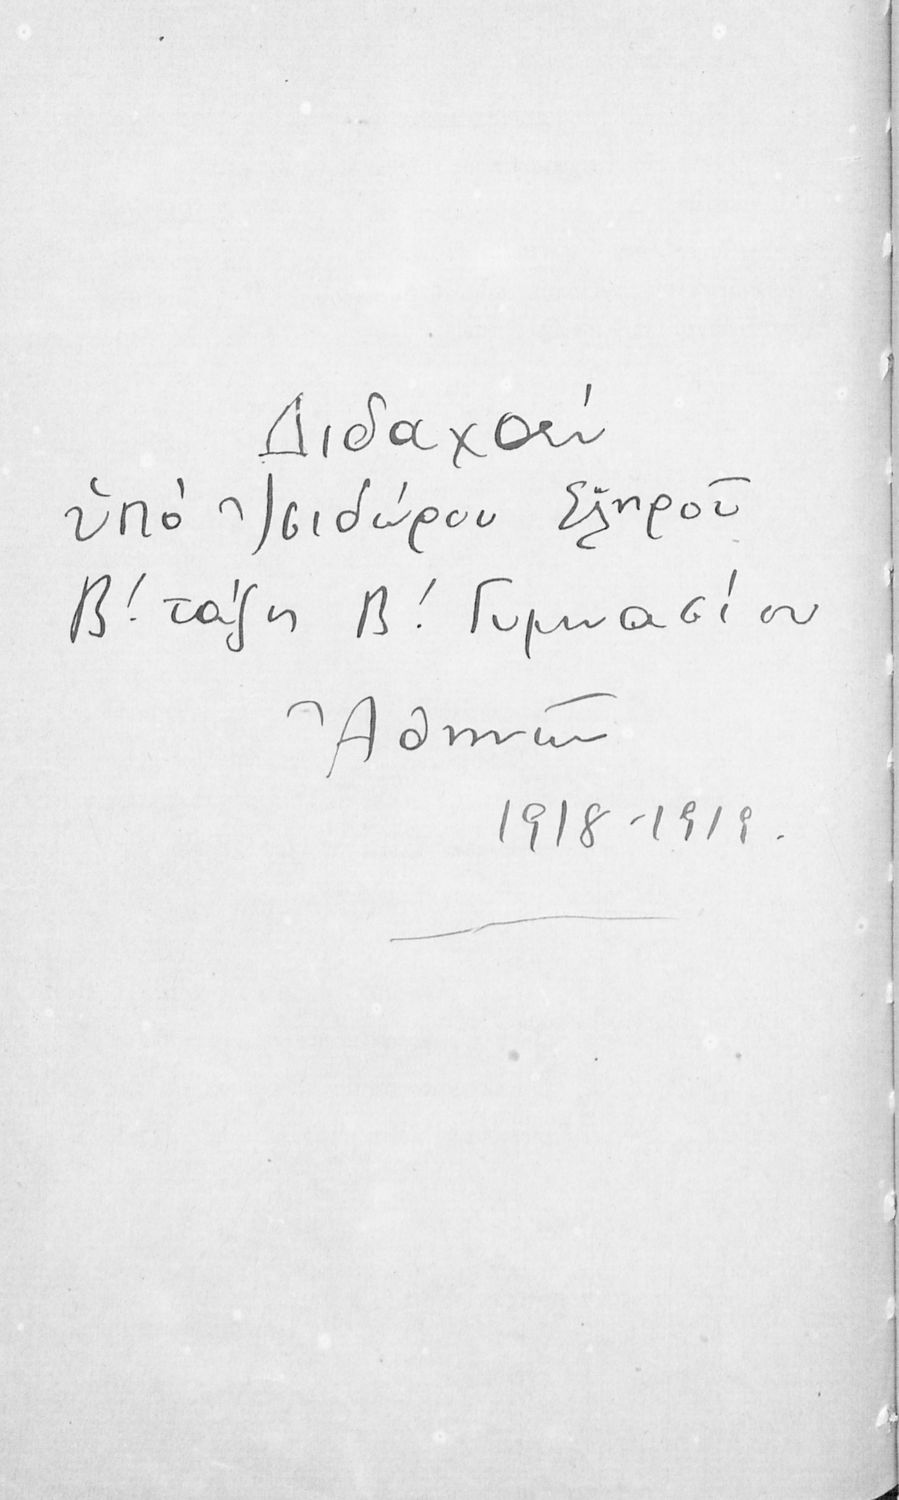 Διδαχθέν
ὑπὸ Ἰσιδώρου Σκληροῦ
Β! τάξη Β! Γυμνασίου
Ἀθηνῶν
1918-1919.